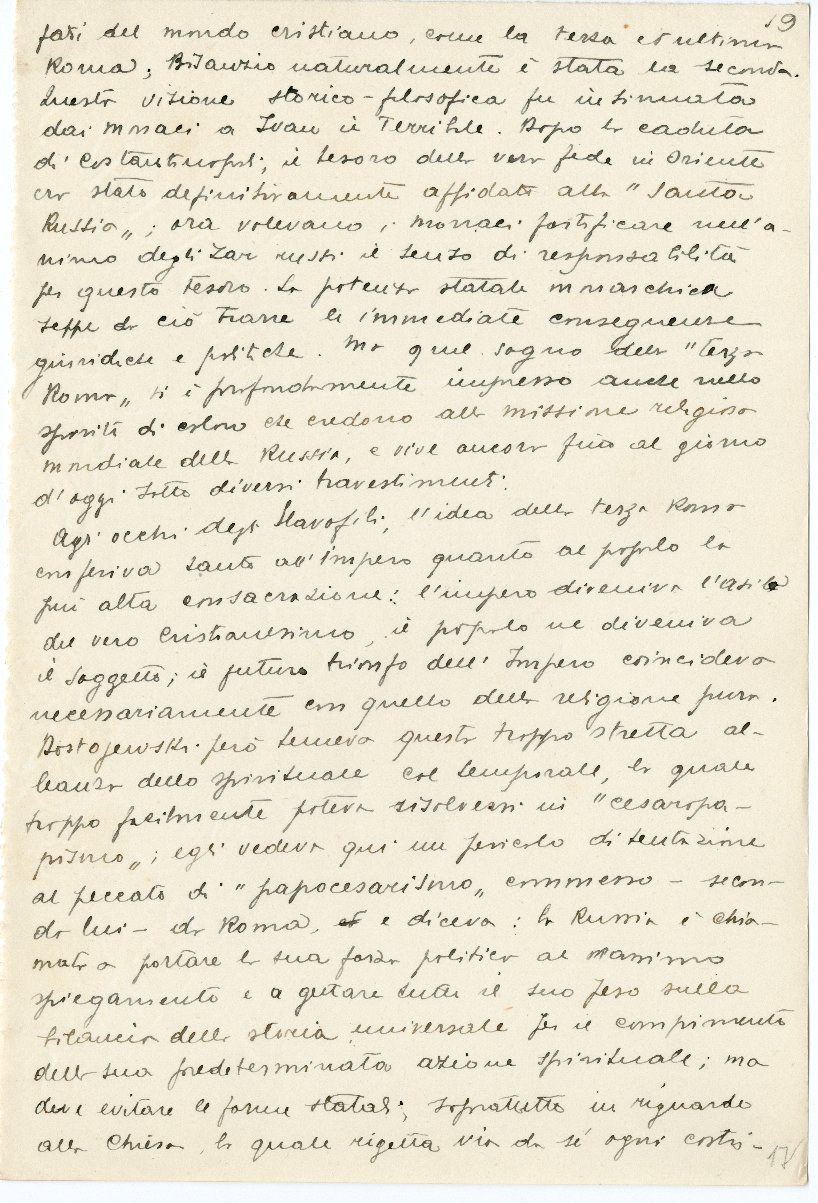 19
fati del mondo cristiano, come la terza ed ultima
Roma; Bisanzio naturalmente è stata la seconda.
Questa visione storico-filosofica fu insinuata
dai monaci a Ivan il Terribile. Dopo la caduta
di Costantinopoli, il tesoro della vera fede in Oriente
era stato definitivamente affidato alla "Santa
Russia„; ora volevano i monaci fortificare nell'a-
nimo degli Zar russi il senso di responsabilità
per questo tesoro. La potenza statale monarchica
seppe da ciò trarre le immediate conseguenze
giuridiche e politiche. Ma quel sogno della "terza
Roma„ si è profondamente impresso anche nello
spirito di coloro che credono alla missione religiosa
mondiale della Russia, e vive ancora fino al giorno
d'oggi sotto diversi travestimenti.
Agli occhi degli Slavofili, l'idea della terza Roma
conferiva tanto all'Impero quanto al popolo la
più alta consacrazione: l'impero diveniva l'asilo
del vero Cristianesimo, il popolo ne diveniva
il soggetto; il futuro trionfo dell'Impero coincideva
necessariamente con quello della religione pura.
Dostojewski però temeva questa troppo stretta al-
leanza dello spirituale col temporale, la quale
troppo facilmente poteva risolversi in "cesaropa-
pismo„; egli vedeva qui un pericolo di tentazione
al peccato di "papocesarismo„ commesso - secon-
do lui - da Roma, e diceva: la Russia è chia-
mata a portare la sua forza politica al massimo
spiegamento e a gettare tutto il suo peso sulla
bilancia della storia universale per il compimento
della sua predeterminata azione spirituale; ma
deve evitare le forme statali, soprattutto in riguardo
alla Chiesa, la quale rigetta via da sé ogni costri-